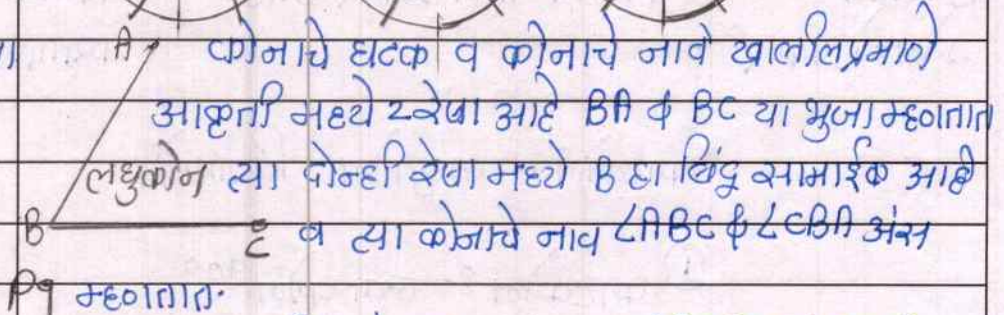 A कोनाचे घटक व कोनाचे नावे खालीलप्रमाणे
आकृती मध्ये 2 रेषा आहे BA & BC या भुजा म्हणतात
लघुकोन त्या दोन्ही रेषा मध्ये B हा बिंदू सामाईक आहे
B C व त्या कोनाचे नाव ∠ABC & ∠CBA अंस
म्हणतात.